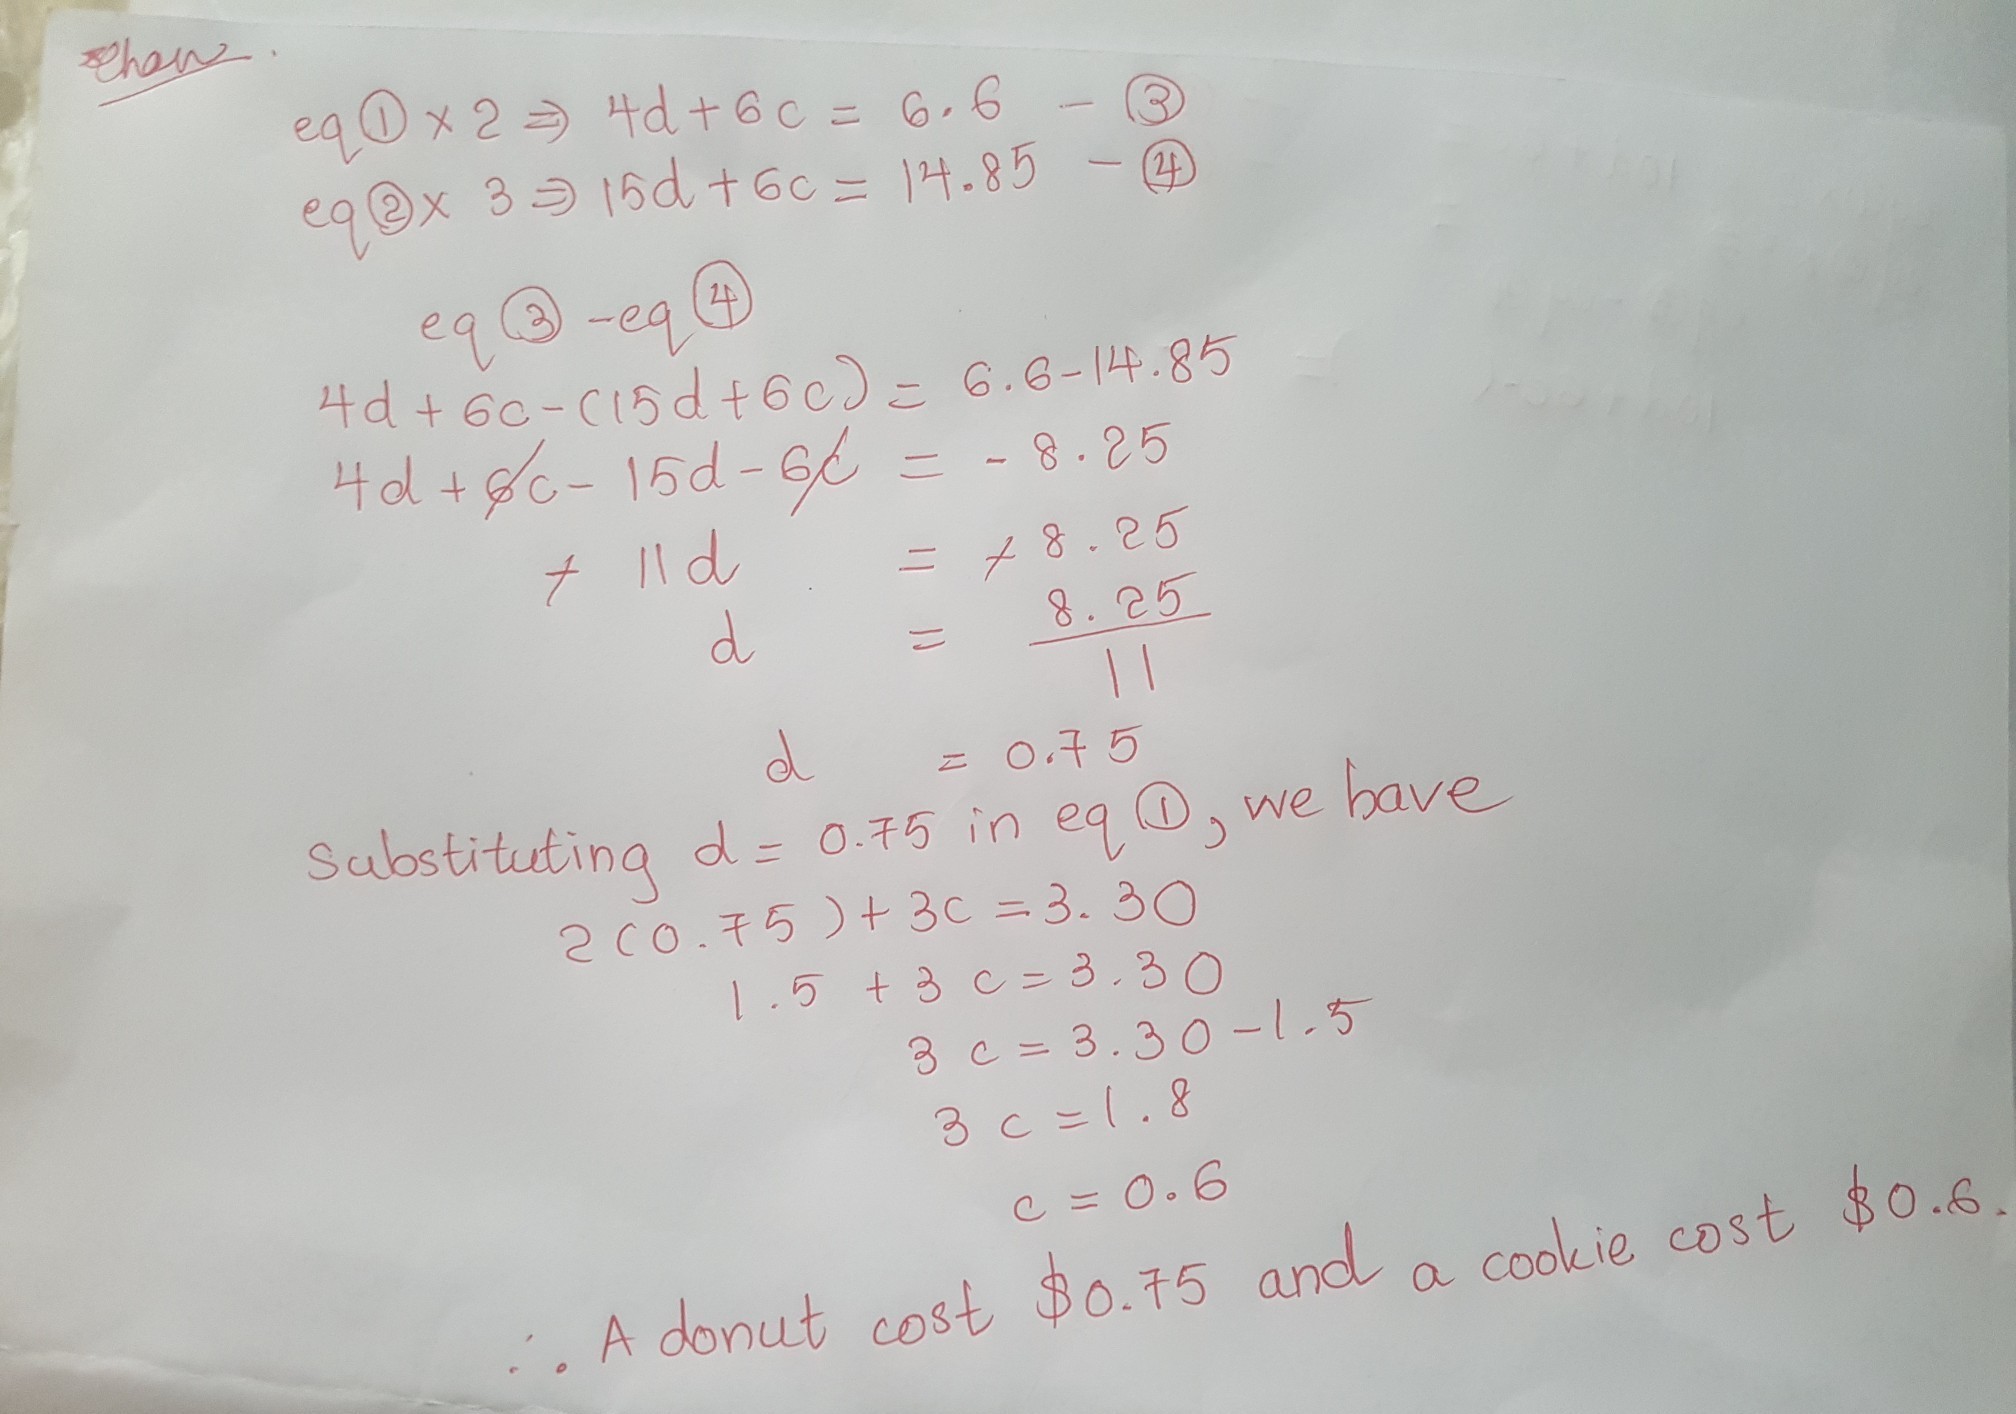 eq ① × 2 ⇒ 4d + 6c = 6.6 - ③
eq ② × 3 ⇒ 15d + 6c = 14.85 - ④
eq ③ - eq ④
4d + 6c - (15d + 6c) = 6.6 - 14.85
4d + 6c - 15d - 6c = - 8.25
- 11d = - 8.25
d = 8.25
11
d = 0.75
Substituting d = 0.75 in eq ①, we have
2(0.75) + 3c = 3.30
1.5 + 3c = 3.30
3c = 3.30 - 1.5
3c = 1.8
c = 0.6
∴ A donut cost $0.75 and a cookie cost $0.6.